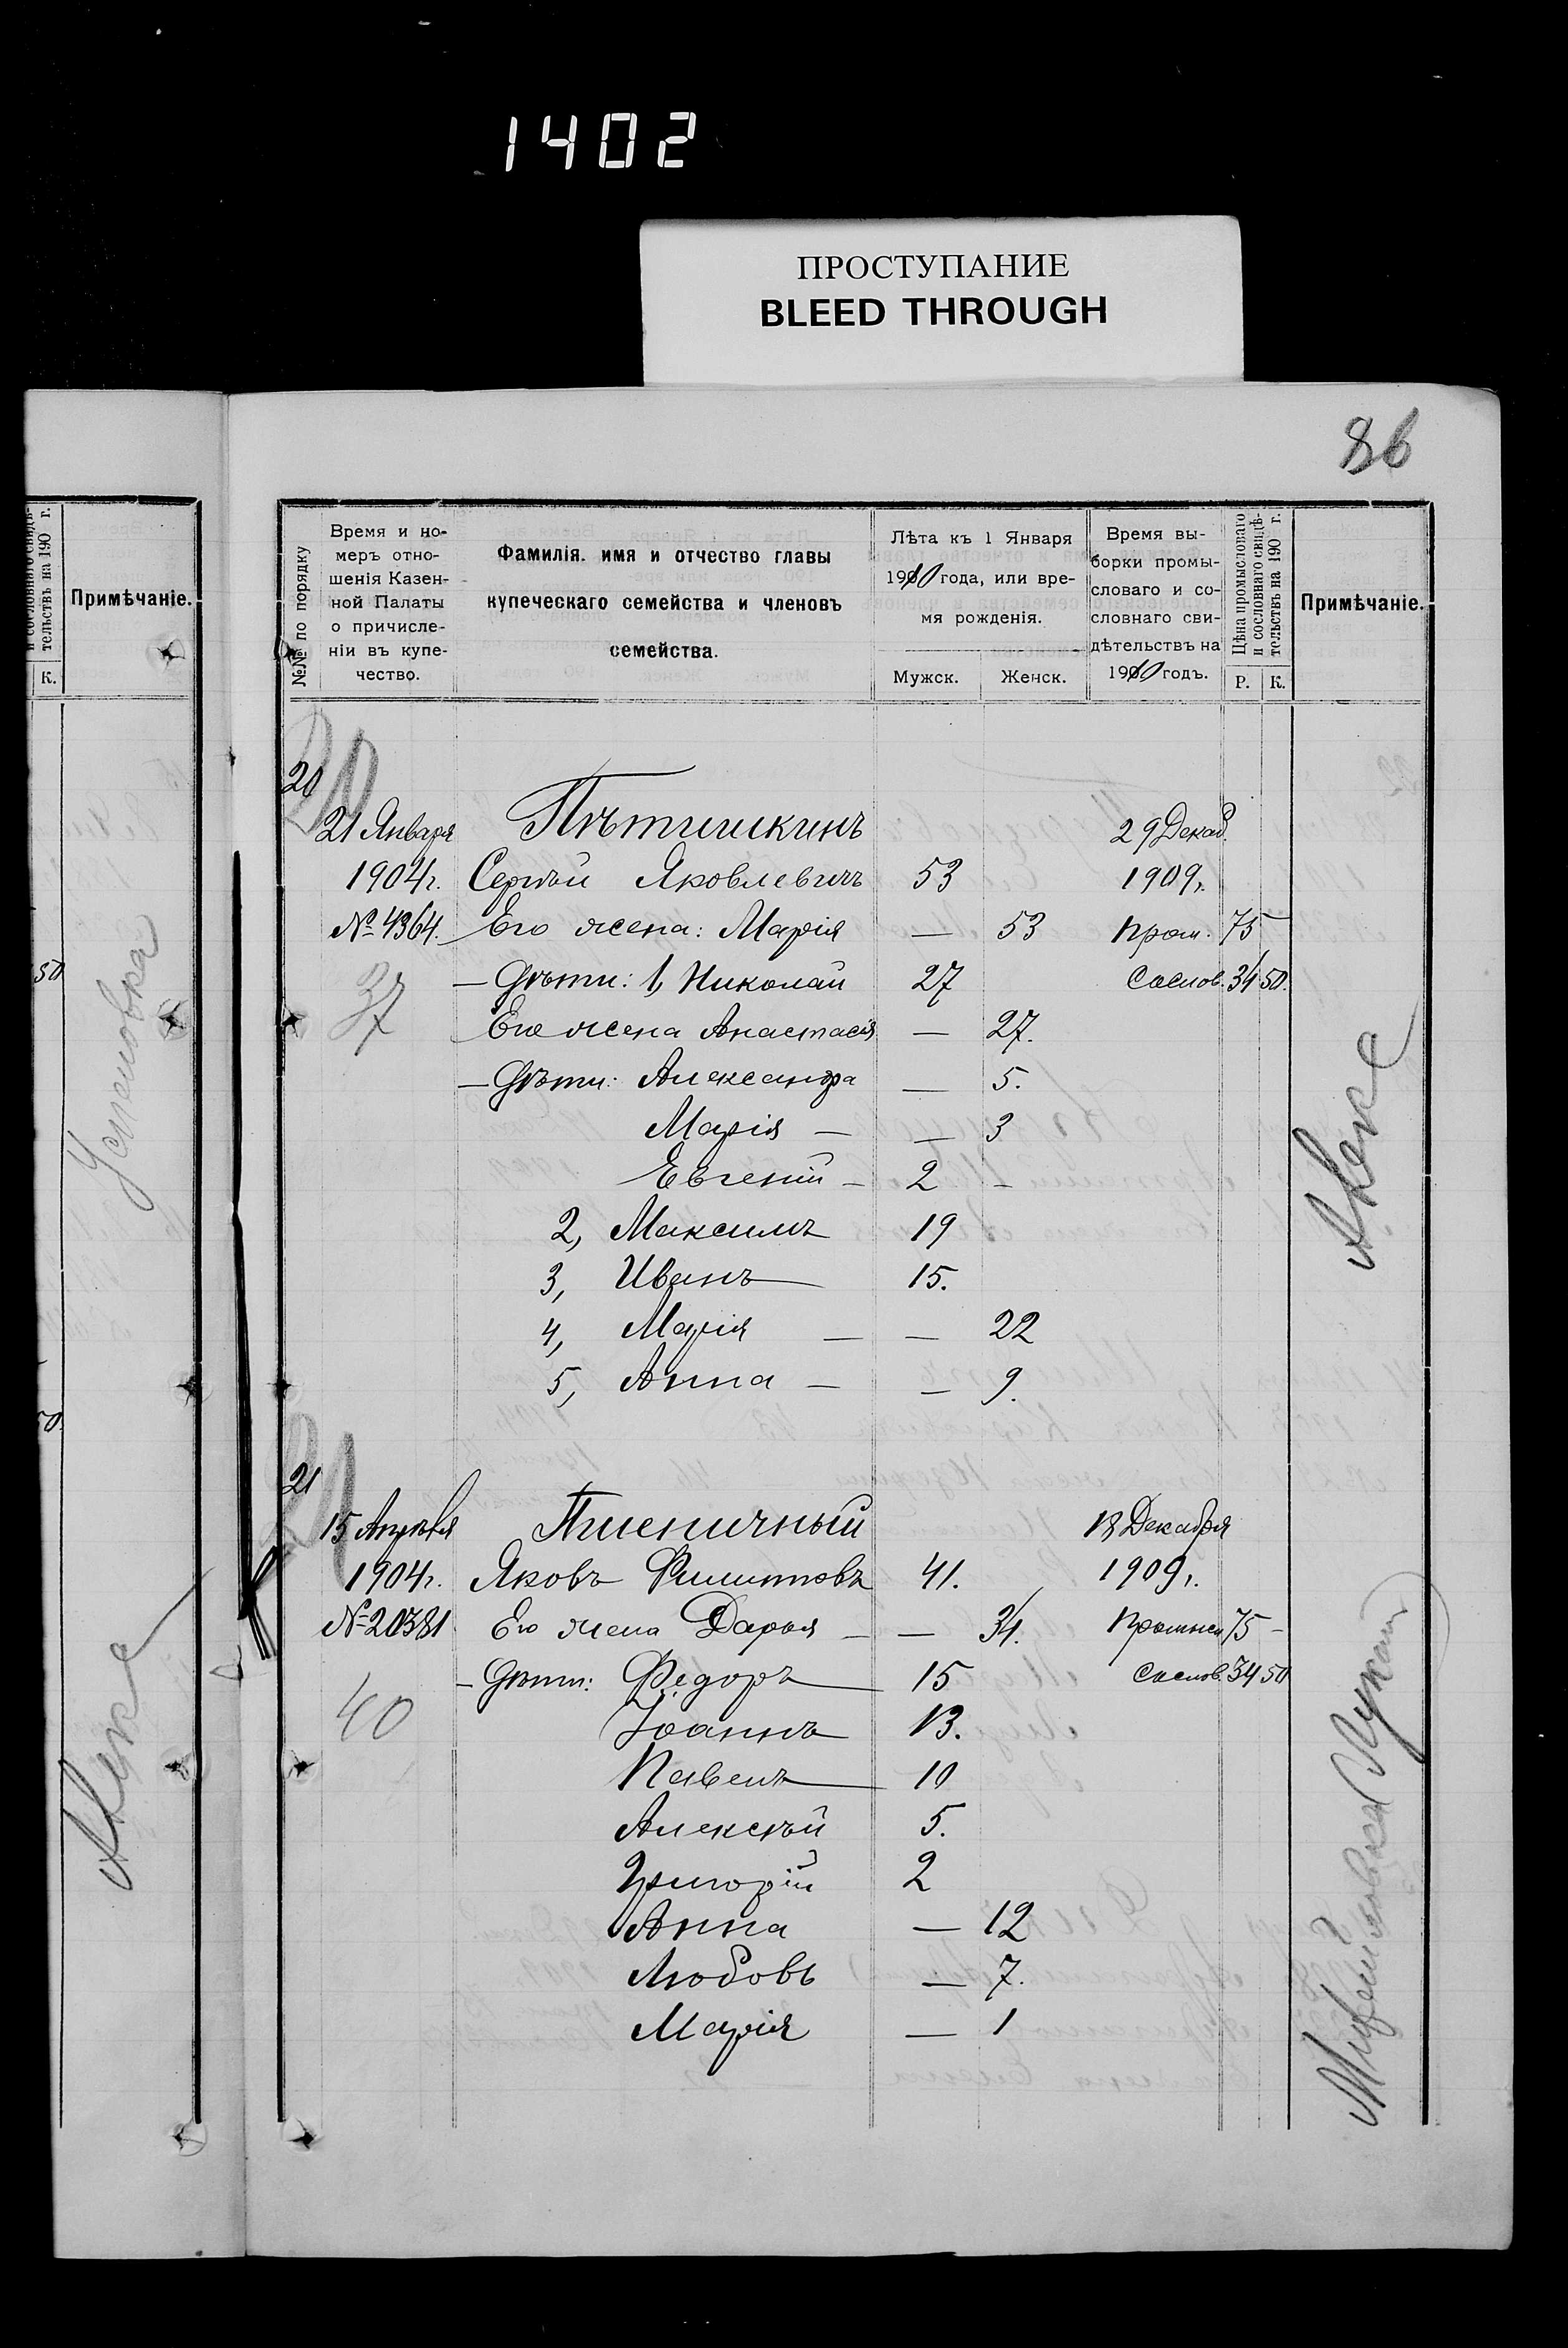 1402
ПРОСТУПАНИЕ
BLEED THROUGH
86
тельствъ на 190 г.
К.
Примѣчаніе.
50
Успеновка
50.
№№ по порядку
Время и но-
меръ отно-
шенія Казен-
ной Палаты
о причисле-
ніи въ купе-
чество.
Фамилія. имя и отчество главы
купеческаго семейства и членовъ
семейства.
Лѣта къ 1 Января
1910 года, или вре-
мя рожденія.
Мужск. Женск.
Время вы-
борки промы-
словаго и со-
словнаго сви-
дѣтельствъ на
1910 годъ.
Цѣна промысловаго
и сословнаго свидѣ-
тельствъ на 190 г.
Р. К.
Примѣчаніе.
20
21 Января Пѣтишкинъ 29 Декаб.
1904 г. Сергѣй Яковлевичъ 53 1909 г.
№ 4364. Его жена: Марія — 53 Пром. 75
37 — Дѣти: 1, Николай 27 Сослов. 34 50.
Его жена Анастасія — 27.
— Дѣти: Александра — 5.
Марія — — 3
Евгеній — 2 –
2, Максимъ 19
3, Иванъ 15.
4, Марія — — 22
5, Анна — — 9.
21
15 Апрѣля Пшеничный 18 Декабря
1904 г. Яковъ Филипповъ 41. 1909 г.
№ 20381 Его жена Дарья — — 34. Промысл 75 –
— Дѣти: Федоръ 15 Сослов. 34 50
40 Іоаннъ 13.
Павелъ 10
Алексѣй 5.
Григорій 2
Анна — 12
Любовь — 7.
Марія — 1